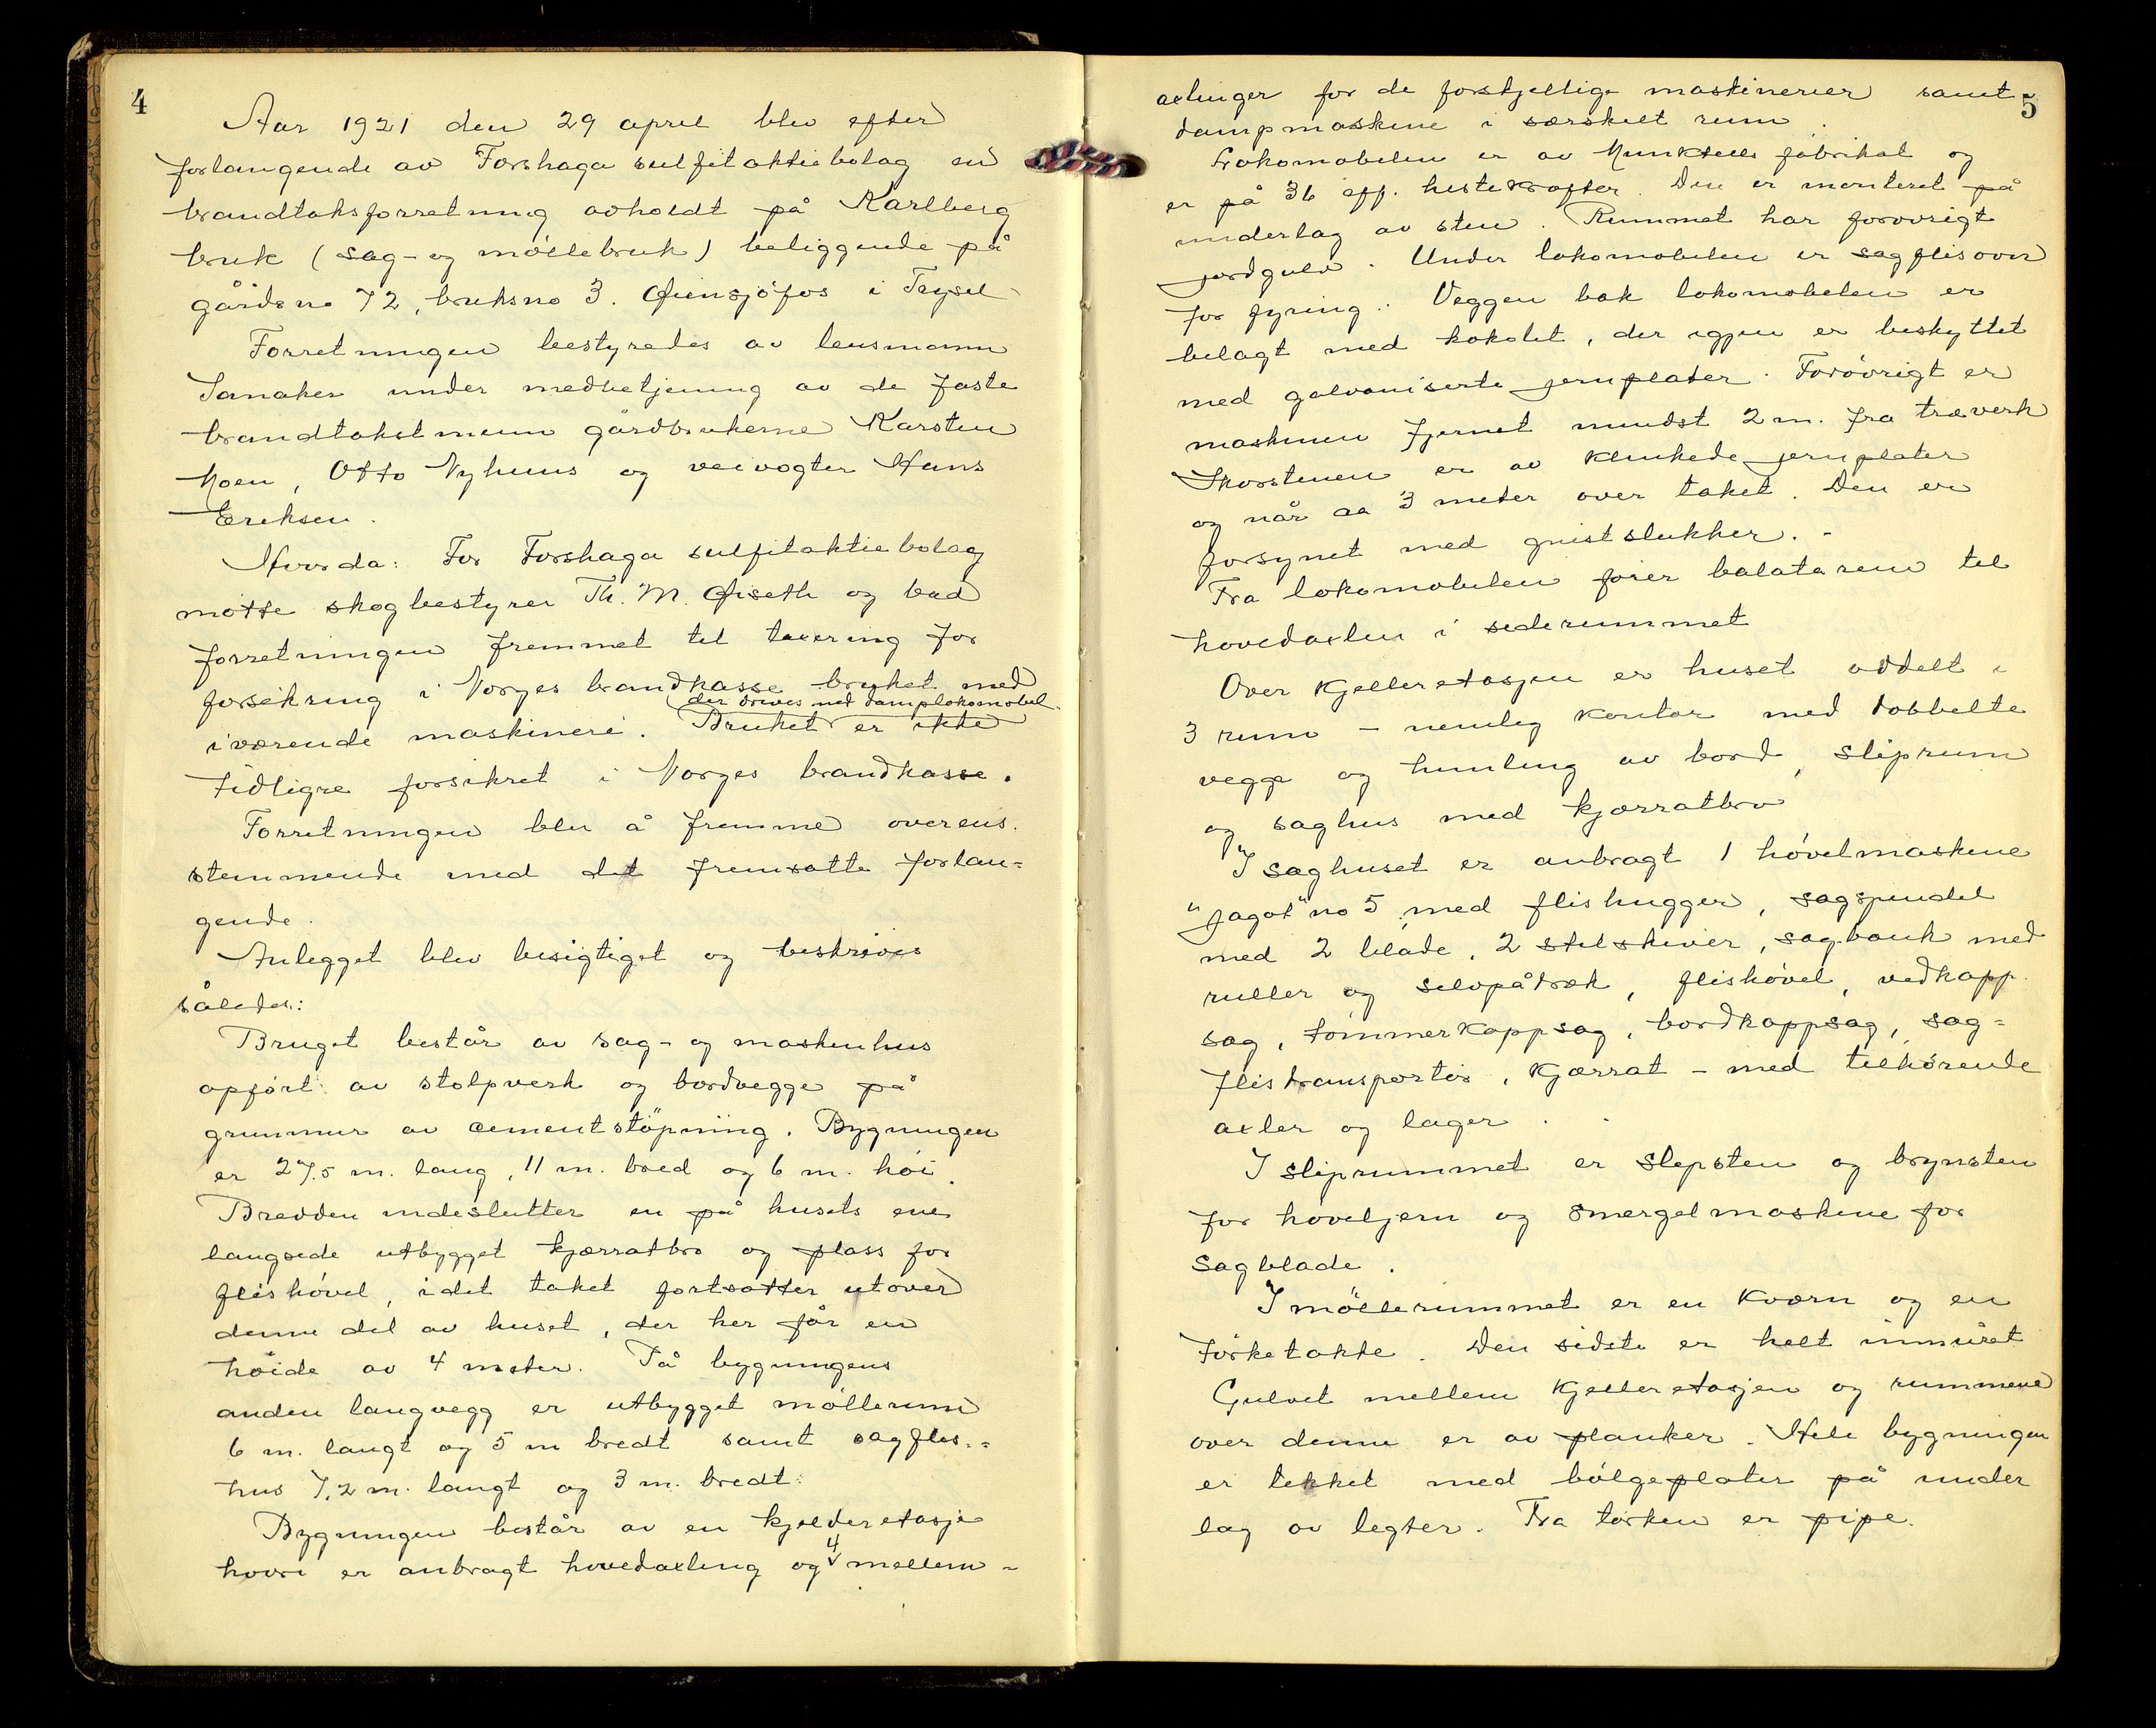 4
Aar 1921 den 29 april blev efter
forlangende av Forshaga sulfitaktiebolag en
brandtaksforretning avholdt på Karlberg
bruk (sag- og möllebruk) beliggende på
gårdsno 72, bruksno 3. Øiensjöfos i Trysil
Forretningen bestyredes av lensmann
Sanaker under medbetjening av de faste
brandtakstmenn gårdbrukerne Karsten
Moen, Otto Nyhuus og veivogter Hans
Eriksen.
Hvorda: For Forshaga sulfitaktiebolag
mötte skogbestyrer Th. M. Øiseth og bad
forretningen fremmet til taxering for
forsikring i Norges brandkasse bruket med
der drives med damplokomobel
iværende maskineri. Bruket er ikke
tidligre forsikret i Norges brandkasse.
Forretningen blev å fremme overens.
stemmende med det fremsatte forlan=
gende.
Anlegget blev besigtiget og beskrives
således:
Bruget består av sag- og maskinhus
opfört av stolpverk og bordvegge på
grunnmur av cementstöpning. Bygningen
er 27.5 m. lang, 11 m. bred og 6 m. höi.
Bredden indeslutter en på husets ene
langside utbygget kjærratbro og plass for
flishövel, idet taket fortsætter utover
denne del av huset, der her får en
höide av 4 meter. På bygningens
anden langvegg er utbygget möllerum
6 m. langt og 5 m bredt samt sagflis.=
hus 7,2 m. langt og 3 m. bredt.
Bygningen består av en kjelderetasje
4
hvori er anbragt hovedaxling og mellem-
5
axlinger for de forskjellige maskinerier samt
dampmaskine i særskilt rum.
Lokomobilen er av Munktells fabrikat og
er på 36 eff. hestekræfter. Den er monteret på
underlag av sten. Rummet har forövrigt
jordgulv. Under lokomobilen er sagflisovn
for fyring. Veggen bak lokomobilen er
belagt med kokolit, der igjen er beskyttet
med galvaniserte jernplater. Forövrigt er
maskinen fjernet mindst 2 m. fra træverk
Skorstenen er av klinkede jernplater
og når ca 3 meter over taket. Den er
forsynet med gnistslukker. -
Fra lokomobilen förer balatarem til
hovedaxlen i siderummet
Over kjelleretasjen er huset avdelt i
3 rum - nemlig kontor med dobbelte
vegge og himling av bord, sliprum
og saghus med kjærratbro
I saghuset er anbragt 1 hövelmaskine
"Jagot" no 5 med flishugger, sagspindel
med 2 blade, 2 stilskiver, sagbænk med
ruller og selvpåtræk, flishövel, vedkapp
sag, tömmerkappsag, bordkappsag, sag=
flistransportör, kjærrat - med tilhörende
axler og lager.
I sliprummet er slipsten og brynsten
for höveljern og smergelmaskine for
sagblade.
I möllerummet er en kværn og en
törketakke. Den sidste er helt inmuret
Gulvet mellem kjelleretasjen og rummene
over denne er av planker. Hele bygningen
er tekket med bölgeplater på under
lag av legter. Fra törken er pipe.